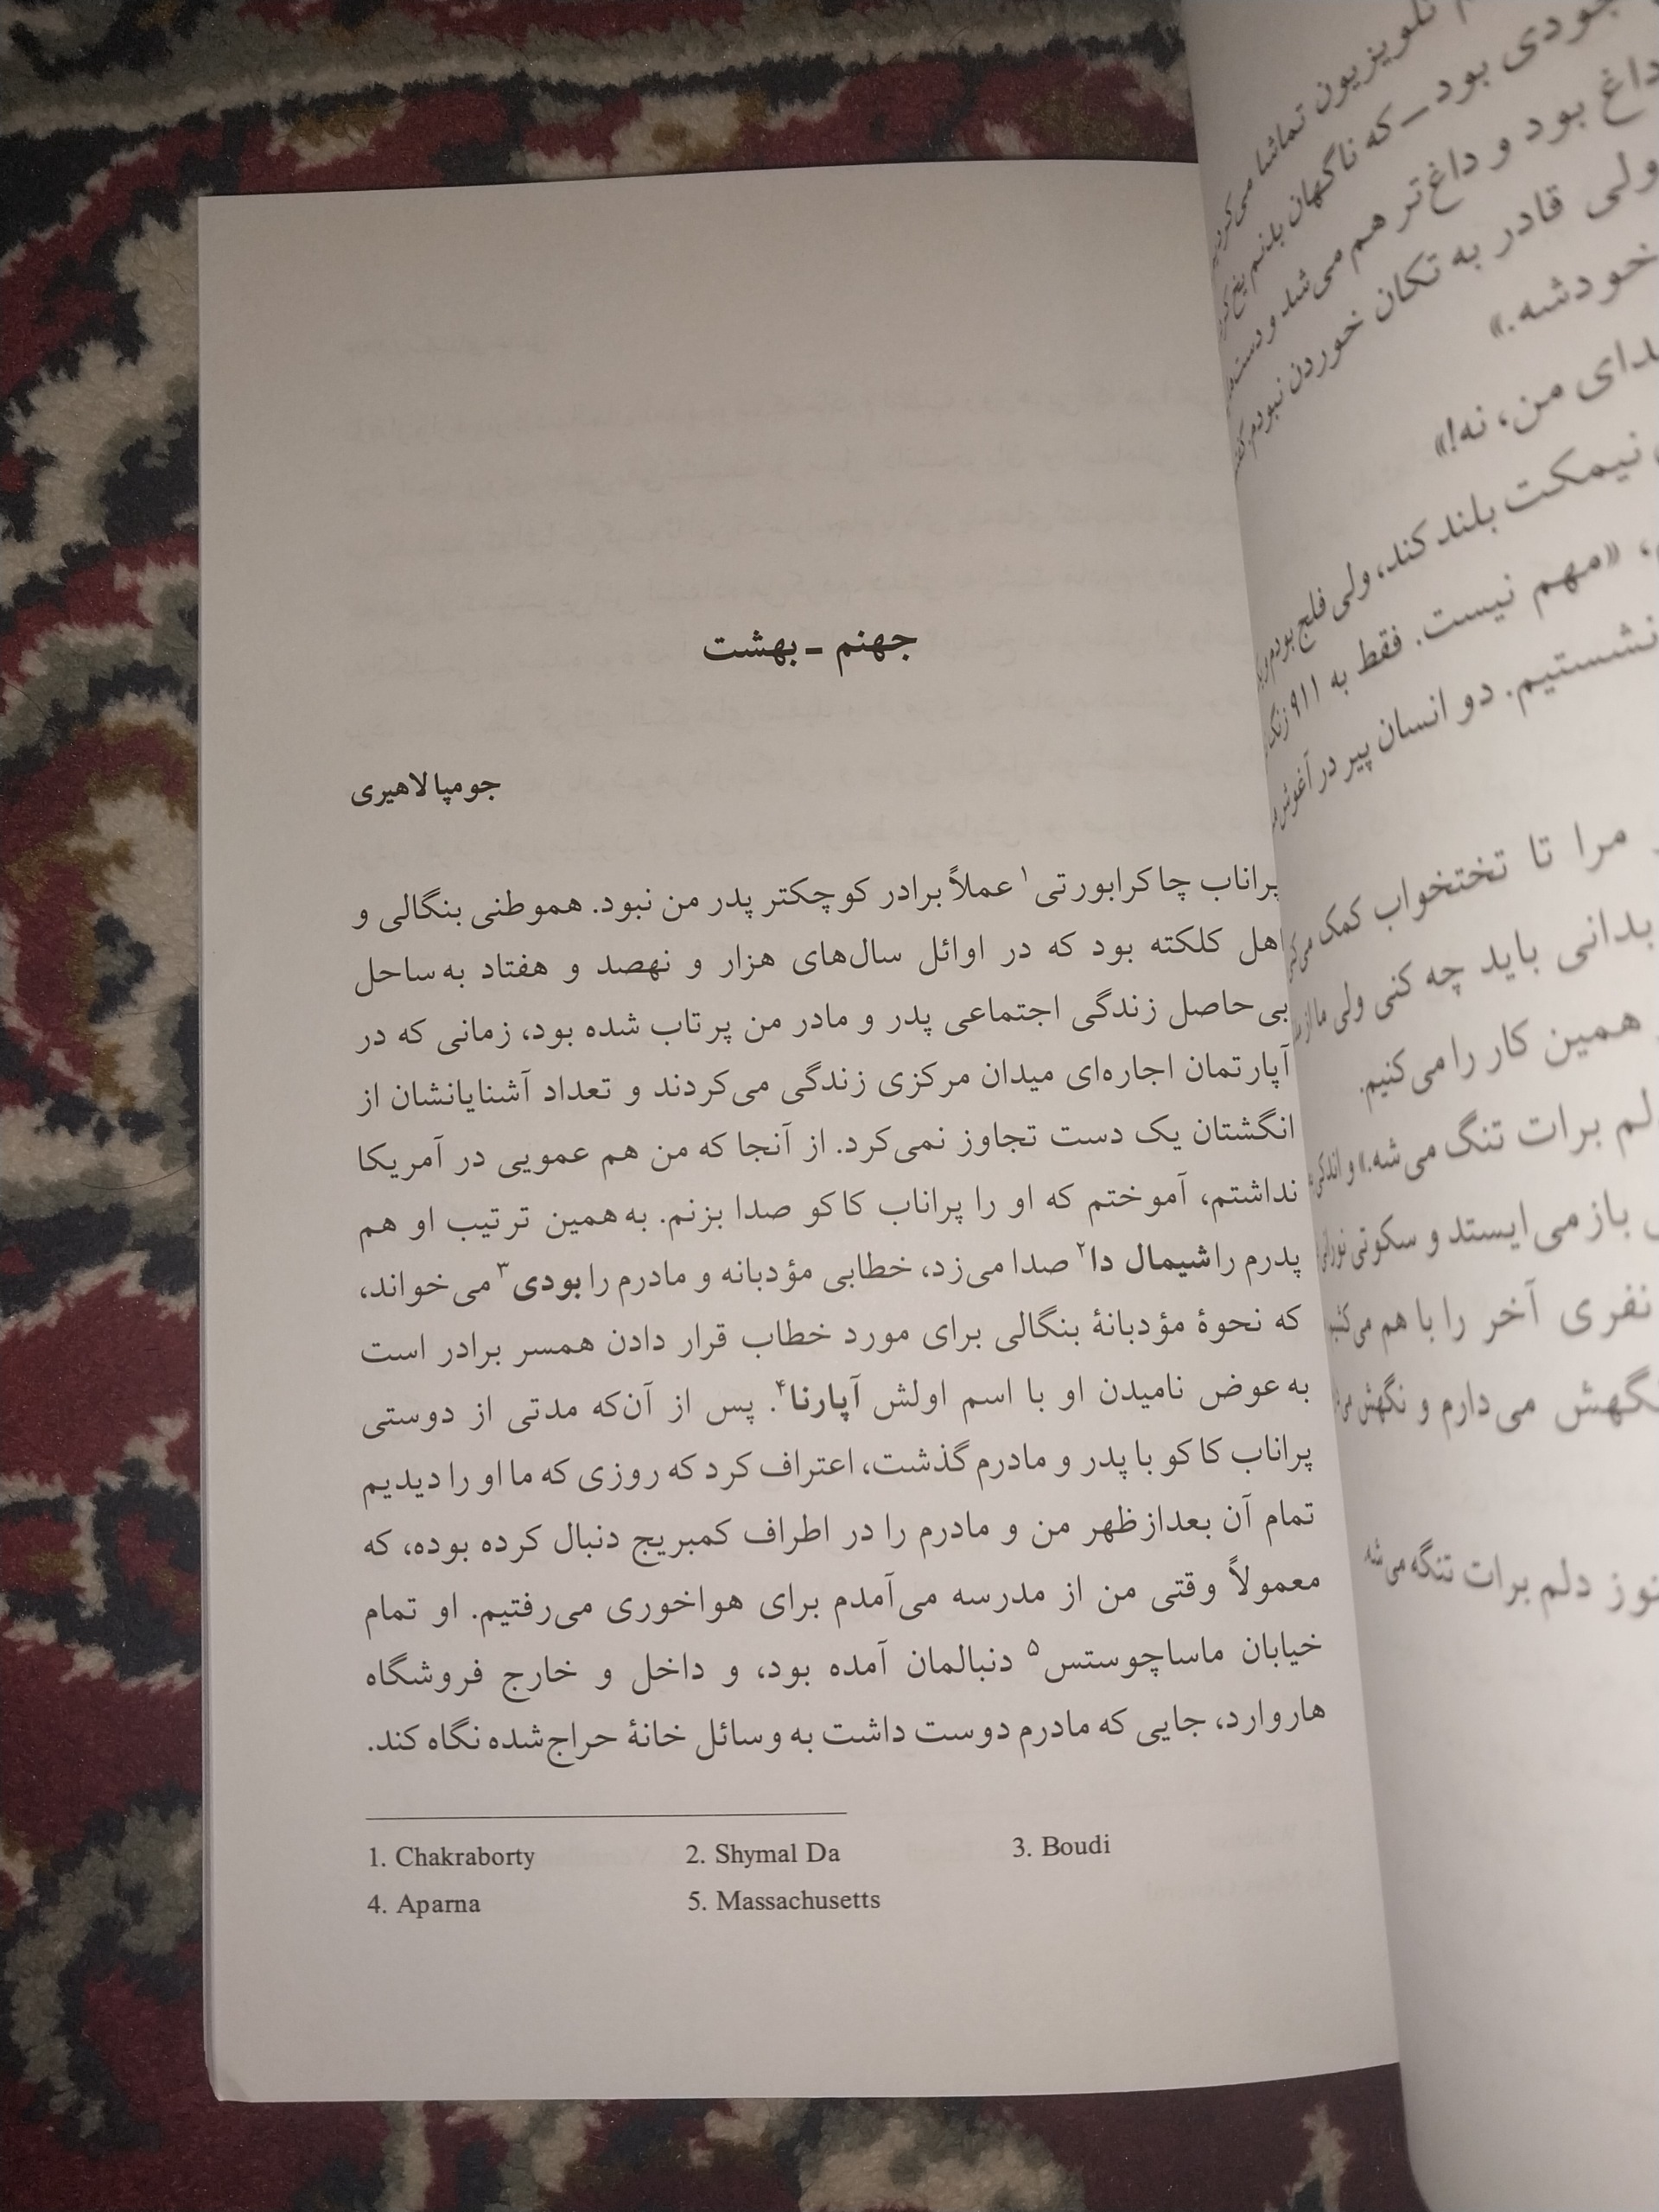 جهنم ـ بهشت
جومپا لاهیری
پراناب چاکرابورتی۱ عملاً برادر کوچکتر پدر من نبود. هموطنی بنگالی و
اهل کلکته بود که در اوائل سال‌های هزار و نهصد و هفتاد به ساحل
بی‌حاصل زندگی اجتماعی پدر و مادر من پرتاب شده بود، زمانی که در
آپارتمان اجاره‌ای میدان مرکزی زندگی می‌کردند و تعداد آشنایانشان از
انگشتان یک دست تجاوز نمی‌کرد. از آنجا که من هم عمویی در آمریکا
نداشتم، آموختم که او را پراناب کاکو صدا بزنم. به همین ترتیب او هم
پدرم را شیمال دا۲ صدا می‌زد، خطابی مؤدبانه و مادرم را بودی۳ می‌خواند،
که نحوهٔ مؤدبانهٔ بنگالی برای مورد خطاب قرار دادن همسر برادر است
به عوض نامیدن او با اسم اولش آپارنا۴. پس از آن‌که مدتی از دوستی
پراناب کاکو با پدر و مادرم گذشت، اعتراف کرد که روزی که ما او را دیدیم
تمام آن بعدازظهر من و مادرم را در اطراف کمبریج دنبال کرده بوده، که
معمولاً وقتی من از مدرسه می‌آمدم برای هواخوری می‌رفتیم. او تمام
خیابان ماساچوستس۵ دنبالمان آمده بود، و داخل و خارج فروشگاه
هاروارد، جایی که مادرم دوست داشت به وسائل خانهٔ حراج‌شده نگاه کند.
1. Chakraborty 2. Shymal Da 3. Boudi
4. Aparna 5. Massachusetts
تلویزیون تماشا
جودی بود ـ که ناگهان بدنم یخ
داغ بود و داغ‌تر هم می‌شد و
ولی قادر به تکان خوردن نبودم.
خودشه.»
من، نه!»
نیمکت بلند کند، ولی فلج بودم
«مهم نیست. فقط به ۹۱۱ زنگ
نشستیم. دو انسان پیر در آغوش
مرا تا تختخواب کمک
بدانی باید چه کنی ولی ما از
همین کار را می‌کنیم.
برات تنگ می‌شه.» و
باز می‌ایستد و سکوتی
نفری آخر را با هم
می‌دارم و نگهش
دلم برات تنگه